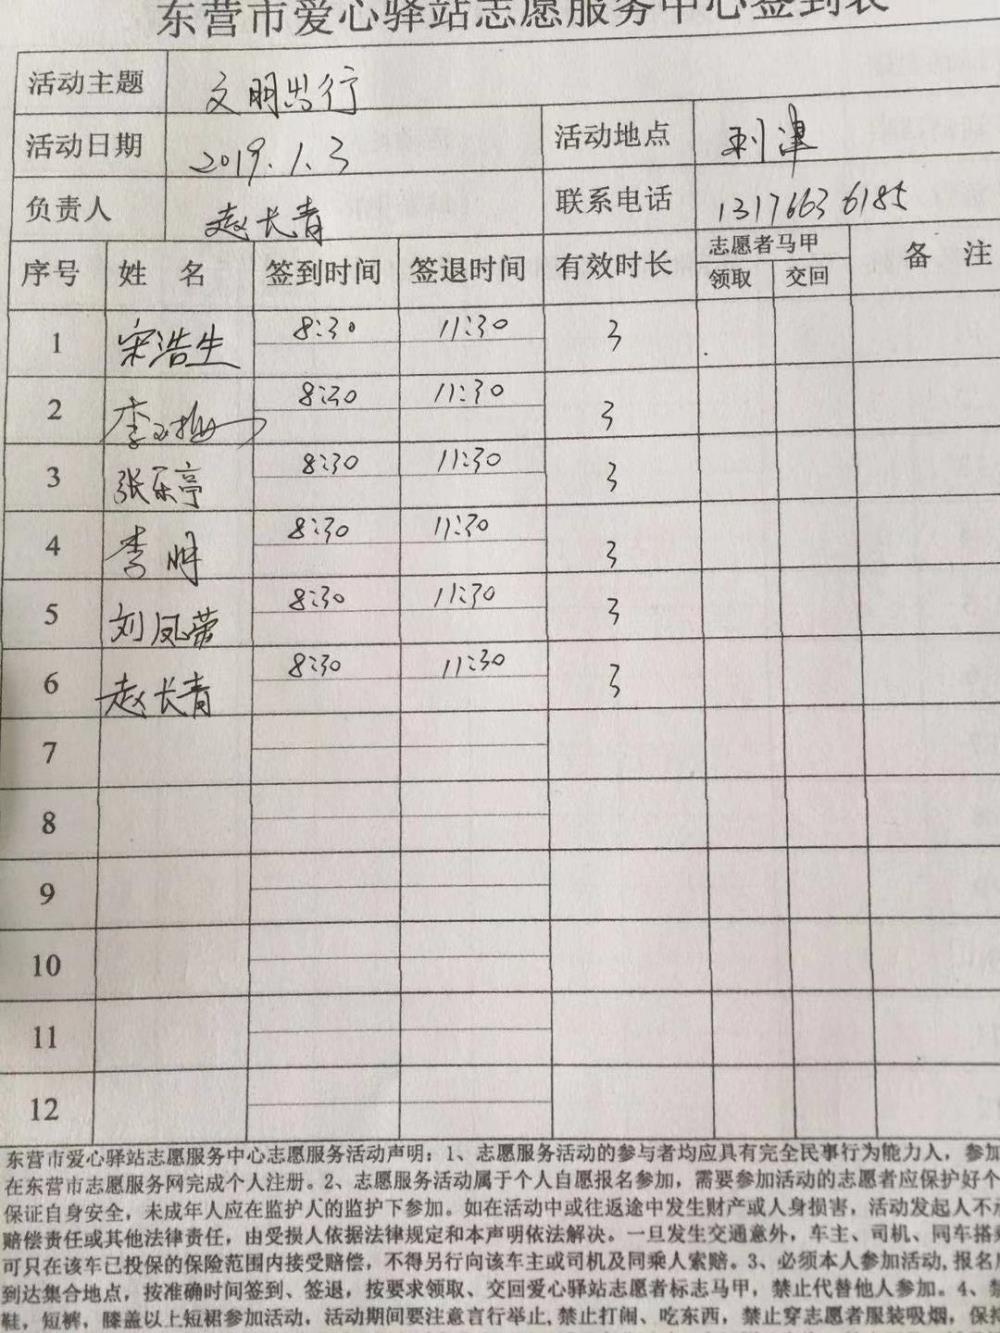 东营市爱心驿站志愿服务中心签到表
活动主题 文明出行
活动日期 2019.1.3 活动地点 利津
负责人 赵长青 联系电话 13176636185
序号 姓 名 签到时间 签退时间 有效时长 志愿者马甲 备 注
领取 交回
1 宋浩生 8:30 11:30 3
2 李玉梅 8:30 11:30 3
3 张乐亭 8:30 11:30 3
4 李明 8:30 11:30 3
5 刘凤荣 8:30 11:30 3
6 赵长青 8:30 11:30 3
7
8
9
10
11
12
东营市爱心驿站志愿服务中心志愿服务活动声明：1、志愿服务活动的参与者均应具有完全民事行为能力人，参加
在东营市志愿服务网完成个人注册。2、志愿服务活动属于个人自愿报名参加，需要参加活动的志愿者应保护好个
保证自身安全，未成年人应在监护人的监护下参加。如在活动中或往返途中发生财产或人身损害，活动发起人不
赔偿责任或其他法律责任，由受损人依据法律规定和本声明依法解决。一旦发生交通意外，车主、司机、同车搭
可只在该车已投保的保险范围内接受赔偿，不得另行向该车主或司机及同乘人索赔。3、必须本人参加活动,报名
到达集合地点，按准确时间签到、签退，按要求领取、交回爱心驿站志愿者标志马甲，禁止代替他人参加。4、禁
鞋，短裤，膝盖以上短裙参加活动，活动期间要注意言行举止,禁止打闹、吃东西，禁止穿志愿者服装吸烟，保